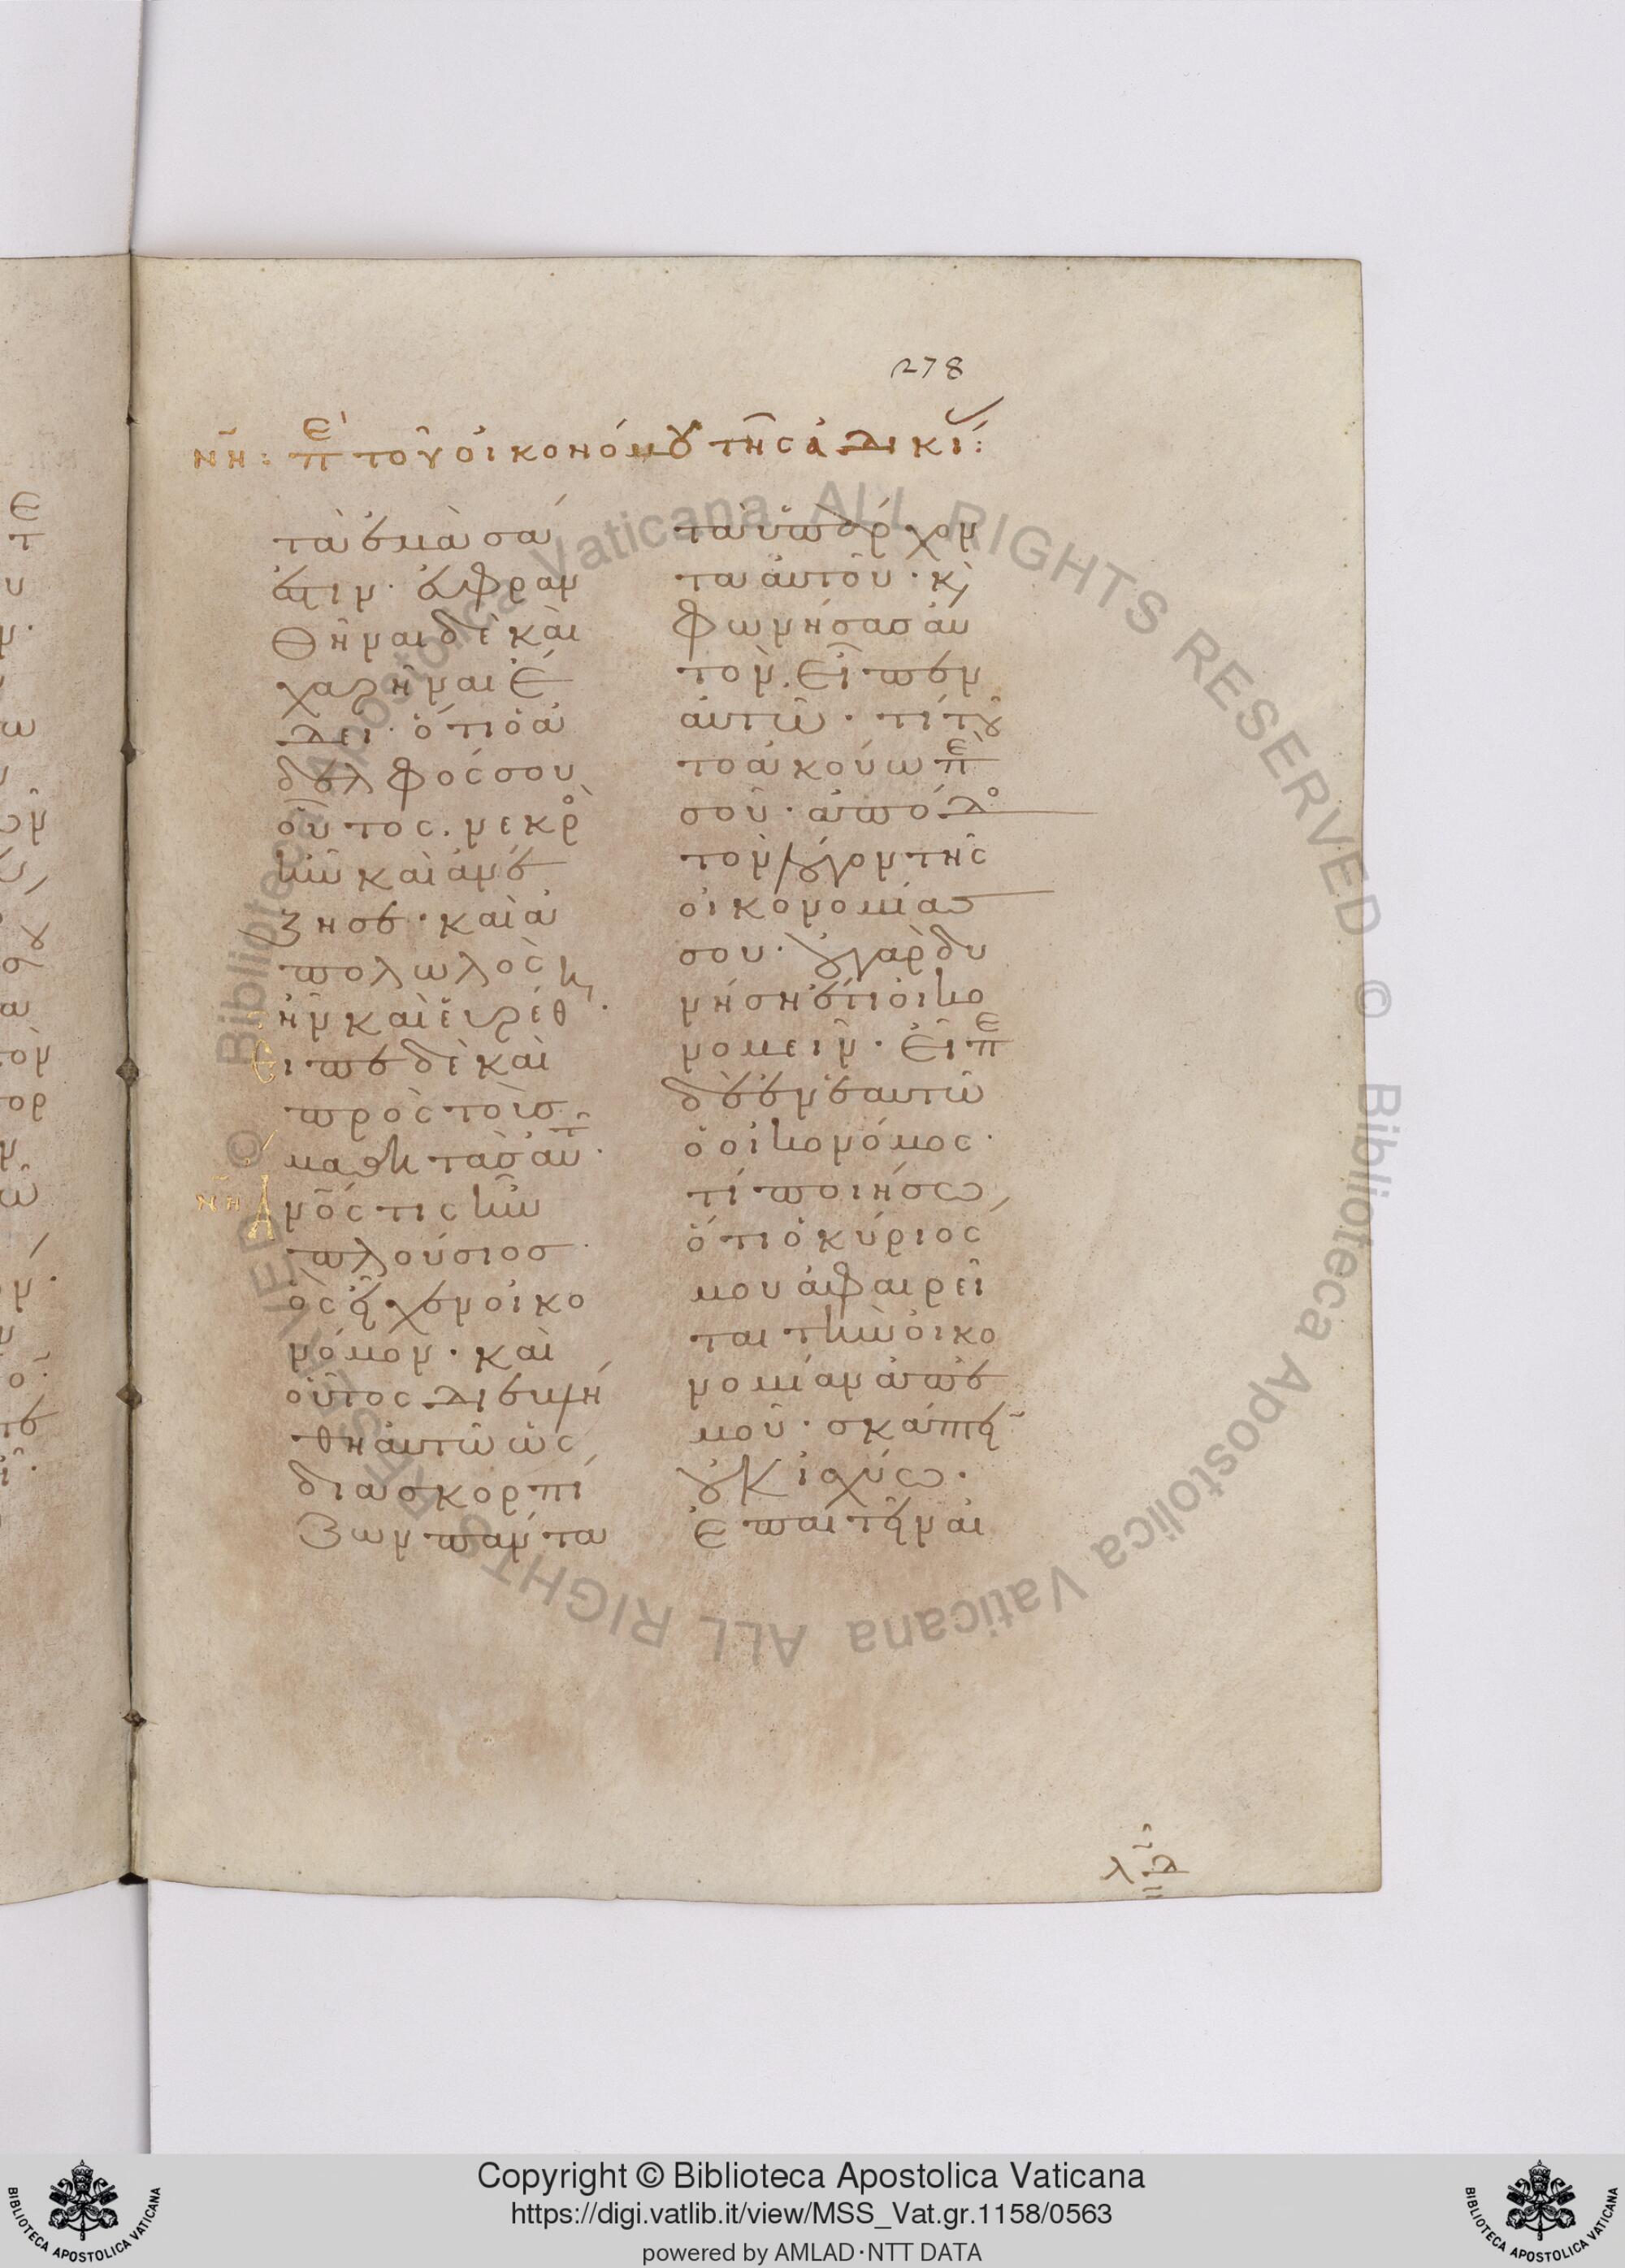 278
νη: πε τοῦ οἰκονόμου τῆς ἀδικί:
τὰ ἐμὰ σά
ἐστιν. εὐφραν
θῆναι δὲ καὶ
χαρῆναι ἔ
δει. ὅτι ὁ ἀ
δελφός σου
οὗτος. νεκρὸ
ἦν καὶ ἀνέ
ζησε. καὶ ἀ
πολωλὸς
ἦν καὶ εὑρέθ.
Εἶπε δὲ καὶ
πρὸς τοὺς
μαθητὰς αὐτ.
νη Ἄνος τις ἦν
πλούσιος.
ὃς εἶχεν οἰκο
νόμον. καὶ
οὗτος διεβλή
θη αὐτῶ ὡς
διασκορπί
ζων πάντα
τὰ ὑπάρχον
τα αὐτοῦ. κὶ
φωνήσας αὐ
τὸν. εἶπεν
αὐτῶ. τί τοῦ
το ἀκούω πε
σοῦ. ἀπόδο
τὸν λόγον τῆς
οἰκονομίας
σου. οὐ γὰρ δυ
νήση ἔτι οἰκο
νομεῖν. εἶπε
δὲ ἐν ἑαυτῶ
ὁ οἰκονόμος.
τί ποιήσω,
ὅτι ὁ κύριός
μου ἀφαιρεῖ
ται τὴν οἰκο
νομίαν ἀπ' ἐ
μοῦ. σκάπτειν
οὐκ ἰσχύω.
ἐπαιτεῖν αἰ
λδ
Biblioteca Apostolica Vaticana ALL RIGHTS RESERVED © Biblioteca Apostolica Vaticana ALL RIGHTS RESERVED ©
Copyright © Biblioteca Apostolica Vaticana
https://digi.vatlib.it/view/MSS_Vat.gr.1158/0563
powered by AMLAD·NTT DATA
BIBLIOTECA APOSTOLICA VATICANA
BIBLIOTECA APOSTOLICA VATICANA